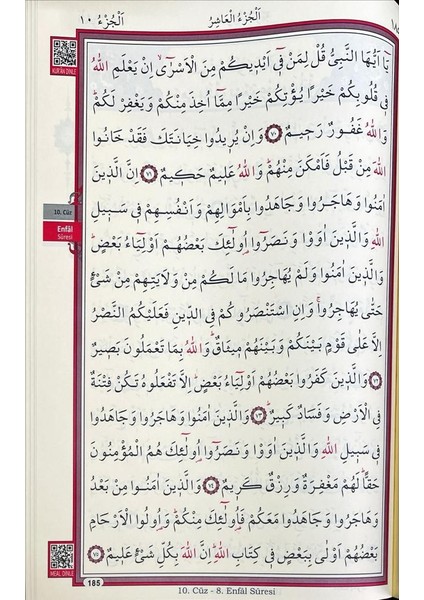 اَلْجُزْءُ ١٠
اَلْجُزْءُ الْعَاشِرُ
KUR'AN DİNLE
يَٓا اَيُّهَا النَّبِيُّ قُلْ لِمَنْ ف۪ٓي اَيْد۪يكُمْ مِنَ الْاَسْرٰٓىۙ اِنْ يَعْلَمِ اللّٰهُ
ف۪ي قُلُوبِكُمْ خَيْرًا يُؤْتِكُمْ خَيْرًا مِمَّٓا اُخِذَ مِنْكُمْ وَيَغْفِرْ لَكُمْۜ
وَاللّٰهُ غَفُورٌ رَح۪يمٌ ﴿٧٠﴾ وَاِنْ يُر۪يدُوا خِيَانَتَكَ فَقَدْ خَانُوا
اللّٰهَ مِنْ قَبْلُ فَاَمْكَنَ مِنْهُمْۜ وَاللّٰهُ عَل۪يمٌ حَك۪يمٌ ﴿٧١﴾ اِنَّ الَّذ۪ينَ
اٰمَنُوا وَهَاجَرُوا وَجَاهَدُوا بِاَمْوَالِهِمْ وَاَنْفُسِهِمْ ف۪ي سَب۪يلِ
اللّٰهِ وَالَّذ۪ينَ اٰوَوْا وَنَصَرُٓوا اُو۬لٰٓئِكَ بَعْضُهُمْ اَوْلِيَٓاءُ بَعْضٍۜ
وَالَّذ۪ينَ اٰمَنُوا وَلَمْ يُهَاجِرُوا مَا لَكُمْ مِنْ وَلَايَتِهِمْ مِنْ شَيْءٍ
حَتّٰى يُهَاجِرُواۚ وَاِنِ اسْتَنْصَرُوكُمْ فِي الدّ۪ينِ فَعَلَيْكُمُ النَّصْرُ
اِلَّا عَلٰى قَوْمٍ بَيْنَكُمْ وَبَيْنَهُمْ م۪يثَاقٌۜ وَاللّٰهُ بِمَا تَعْمَلُونَ بَص۪يرٌ
﴿٧٢﴾ وَالَّذ۪ينَ كَفَرُوا بَعْضُهُمْ اَوْلِيَٓاءُ بَعْضٍۜ اِلَّا تَفْعَلُوهُ تَكُنْ فِتْنَةٌ
فِي الْاَرْضِ وَفَسَادٌ كَب۪يرٌۜ ﴿٧٣﴾ وَالَّذ۪ينَ اٰمَنُوا وَهَاجَرُوا وَجَاهَدُوا
ف۪ي سَب۪يلِ اللّٰهِ وَالَّذ۪ينَ اٰوَوْا وَنَصَرُٓوا اُو۬لٰٓئِكَ هُمُ الْمُؤْمِنُونَ
حَقًّاۜ لَهُمْ مَغْفِرَةٌ وَرِزْقٌ كَر۪يمٌ ﴿٧٤﴾ وَالَّذ۪ينَ اٰمَنُوا مِنْ بَعْدُ
وَهَاجَرُوا وَجَاهَدُوا مَعَكُمْ فَاُو۬لٰٓئِكَ مِنْكُمْۜ وَاُو۬لُوا الْاَرْحَامِ
بَعْضُهُمْ اَوْلٰى بِبَعْضٍ ف۪ي كِتَابِ اللّٰهِۜ اِنَّ اللّٰهَ بِكُلِّ شَيْءٍ عَل۪يمٌ ﴿٧٥﴾
10. Cüz
Enfâl
Sûresi
MEAL DİNLE
185
10. Cüz - 8. Enfâl Sûresi